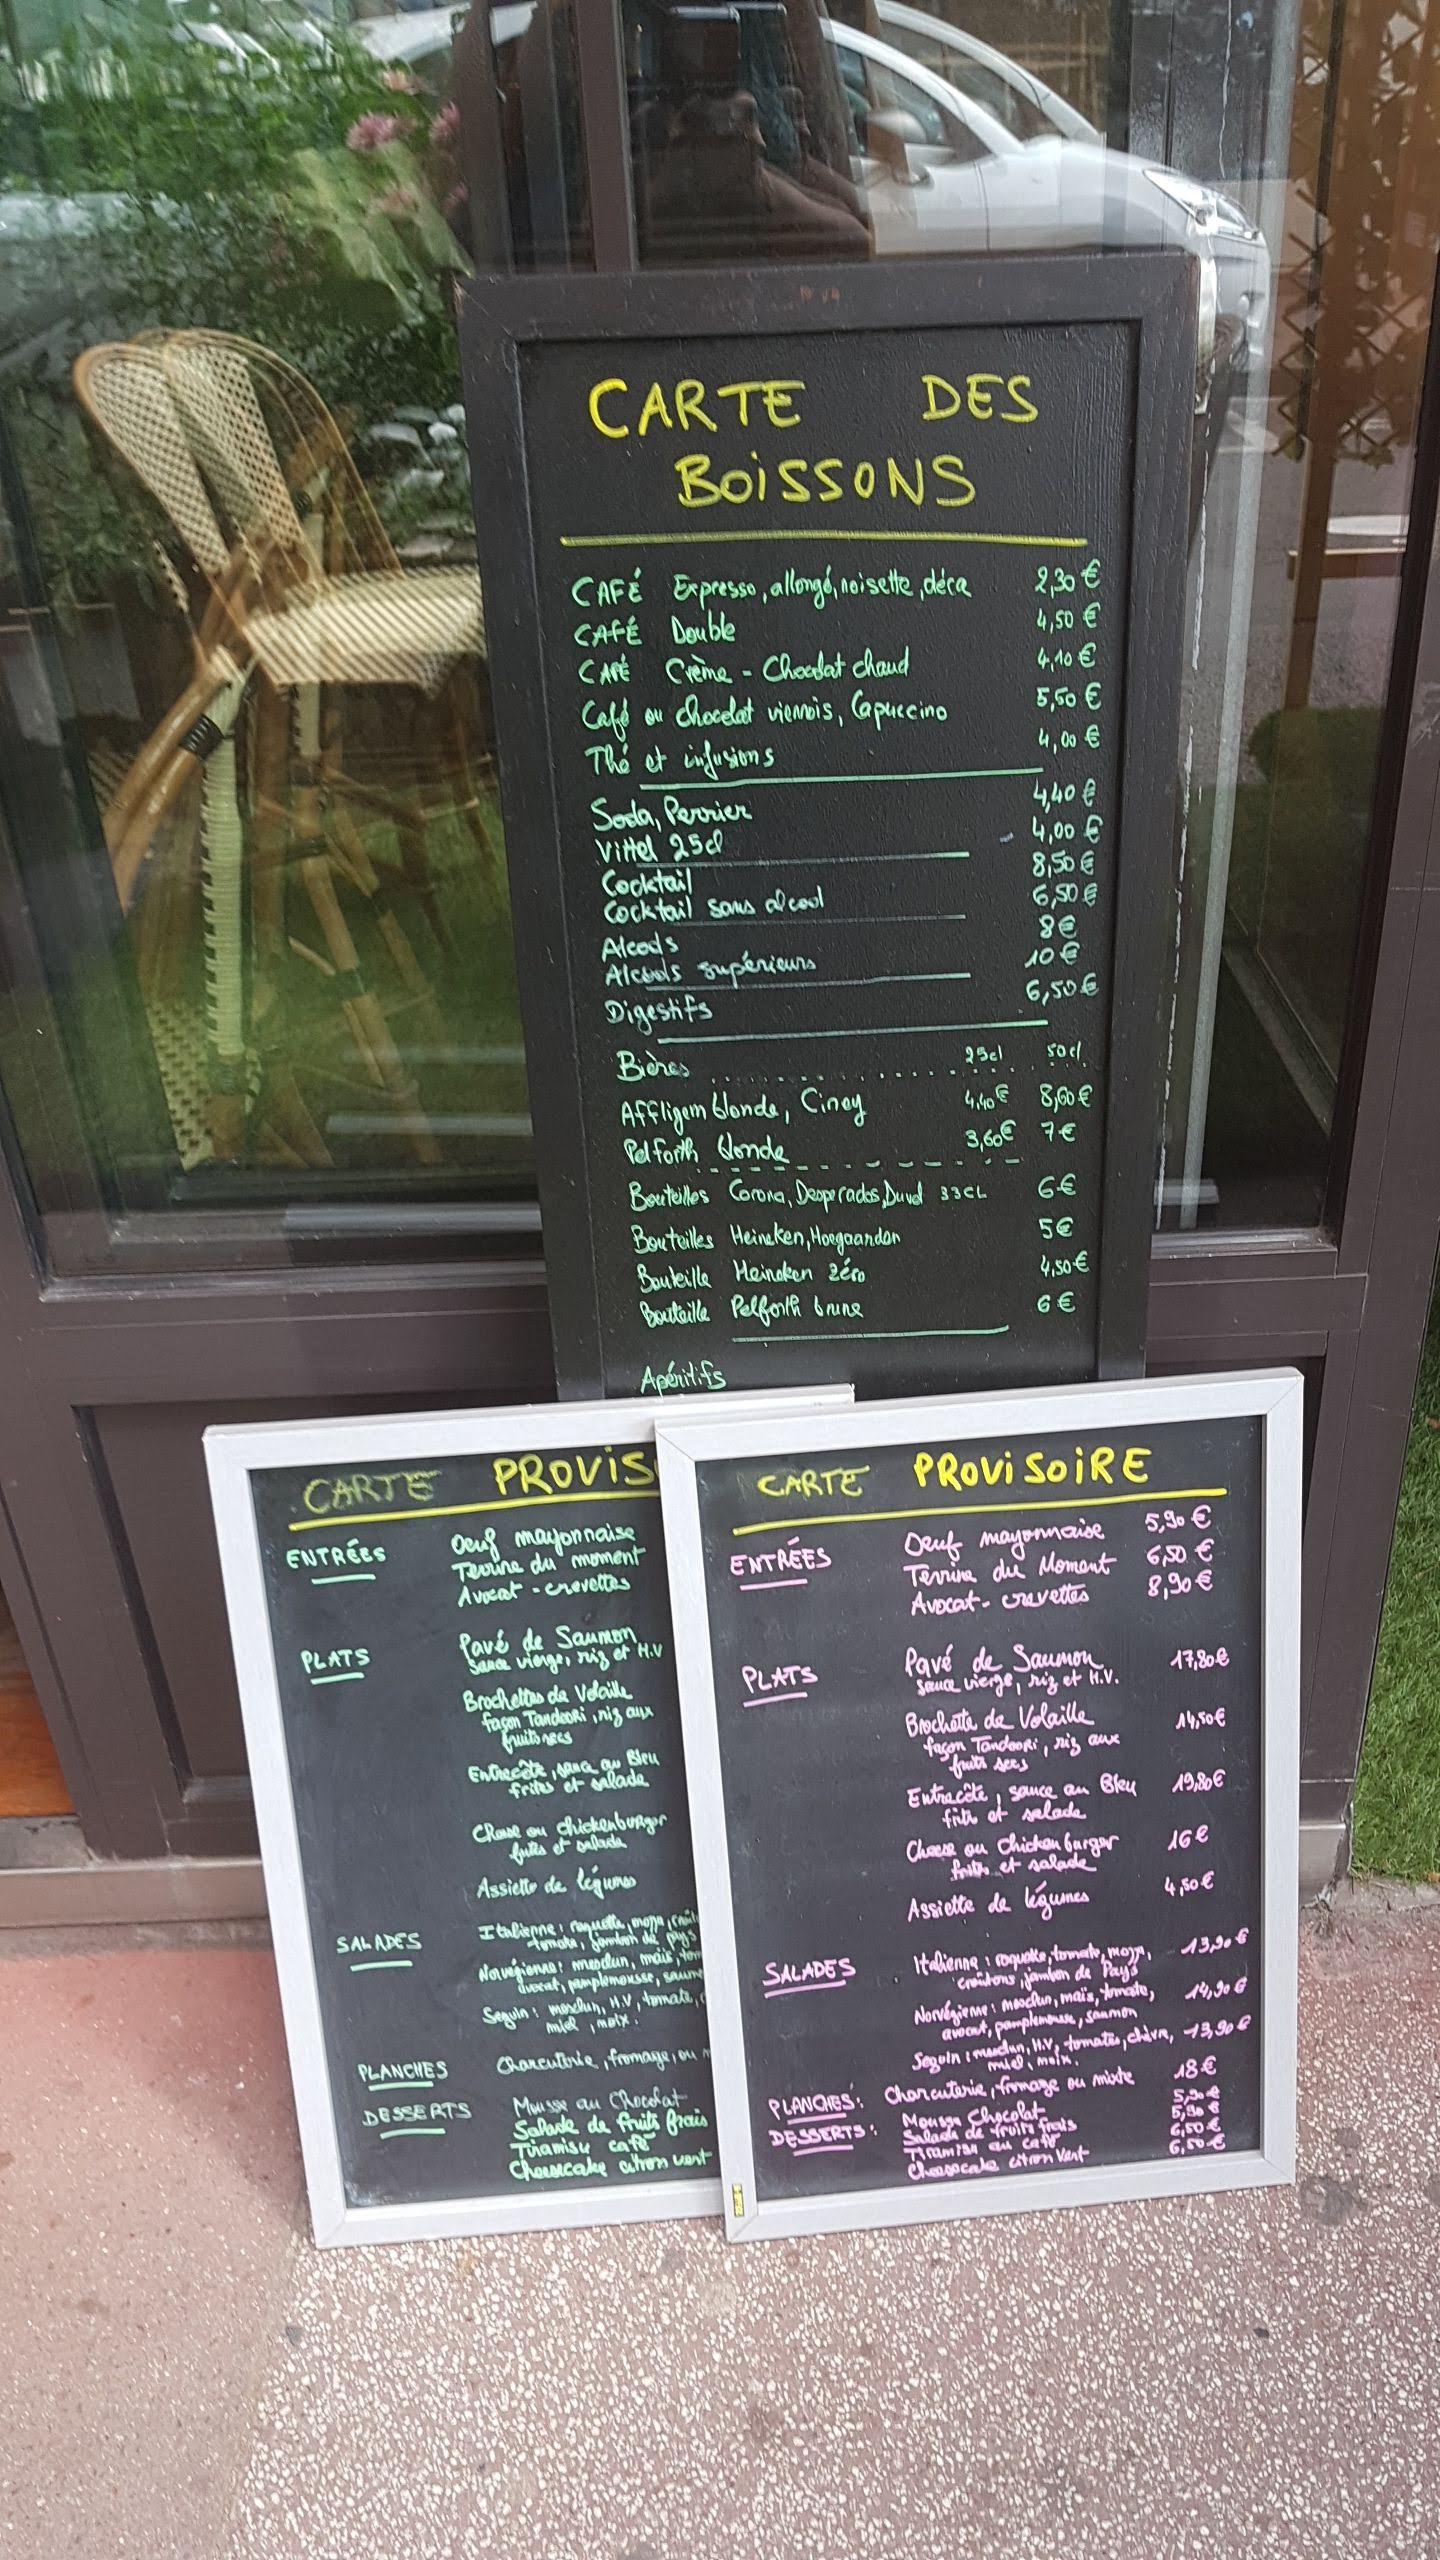 CARTE DES
BOISSONS
CAFÉ Expresso, allongé, noisette, déca 2,30 €
CAFÉ Double 4,50 €
CAFÉ Crème - Chocolat chaud 4,10 €
Café ou chocolat viennois, Capuccino 5,50 €
Thé et infusions 4,00 €
Soda, Perrier 4,40 €
Vittel 25cl 4,00 €
Cocktail 8,50 €
Cocktail sans alcool 6,50 €
Alcools 8 €
Alcools supérieurs 10 €
Digestifs 6,50 €
Bières 25cl 50cl
Affligem blonde, Ciney 4,40 € 8,60 €
Pelforth blonde 3,60 € 7 €
Bouteilles Corona, Desperados, Duvel 33CL 6 €
Bouteilles Heineken, Hoegaarden 5 €
Bouteille Heineken zéro 4,50 €
Bouteille Pelforth brune 6 €
Apéritifs
CARTE PROVIS
ENTRÉES Oeuf mayonnaise
Terrine du moment
Avocat - crevettes
PLATS Pavé de Saumon
sauce vierge, riz et H.V
Brochettes de Volaille
façon Tandoori, riz aux
fruits secs
Entrecôte, sauce au Bleu
frites et salade
Cheese ou chickenburger
frites et salade
Assiette de légumes
SALADES Italienne : roquette, mozza,
tomate, jambon de pays
Norvégienne : mesclun, maïs, tom
avocat, pamplemousse, saumo
Seguin : mesclun, H.V, tomate,
miel, noix.
PLANCHES Charcuterie, fromage, ou m
DESSERTS Mousse au Chocolat
Salade de fruits frais
Tiramisu café
Cheesecake citron vert
CARTE PROVISOIRE
ENTRÉES Oeuf mayonnaise 5,90 €
Terrine du Moment 6,50 €
Avocat - crevettes 8,90 €
PLATS Pavé de Saumon 17,80 €
sauce vierge, riz et H.V.
Brochette de Volaille 14,50 €
façon Tandoori, riz aux
fruits secs
Entrecôte, sauce au Bleu 19,80 €
frites et salade
Cheese ou Chicken burger 16 €
frites et salade
Assiette de légumes 4,50 €
SALADES Italienne : roquette, tomate, mozza, 13,90 €
croûtons, jambon de Pays
Norvégienne : mesclun, maïs, tomate, 14,90 €
avocat, pamplemousse, saumon
Seguin : mesclun, H.V, tomates, chèvre, 13,90 €
miel, noix.
PLANCHES : Charcuterie, fromage ou mixte 18 €
DESSERTS : Mousse Chocolat 5,90 €
Salade de fruits frais 5,90 €
Tiramisu au café 6,50 €
Cheesecake citron vert 6,50 €